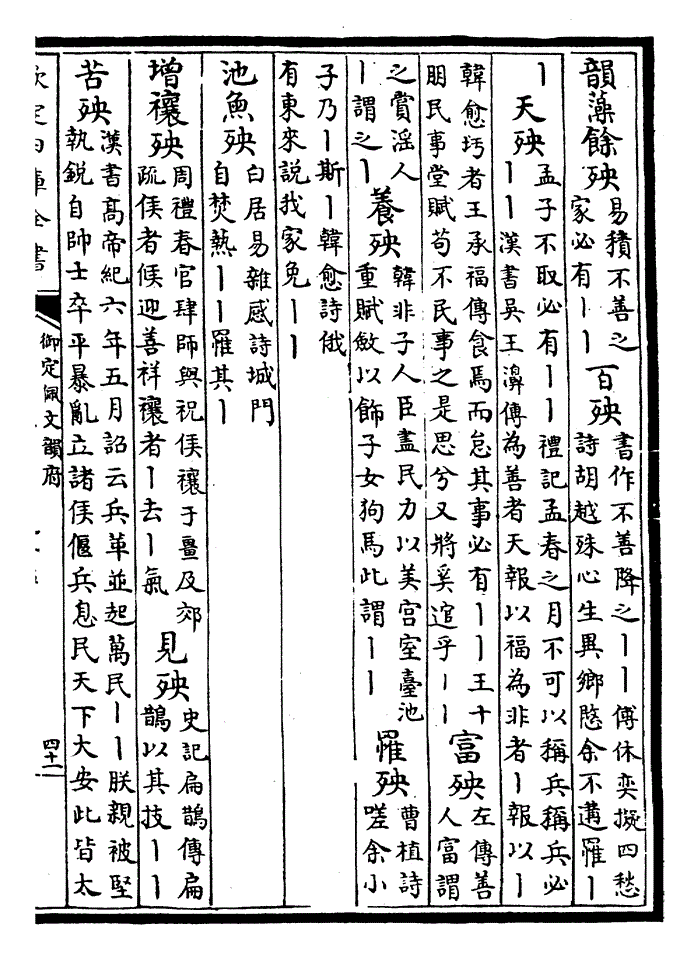 韻藻餘殃易積不善之
家必有丨丨百殃書作不善降之丨丨傅休奕擬四愁
詩胡越殊心生異鄉愍余不遘罹丨
丨天殃孟子不取必有丨丨禮記孟春之月不可以稱兵稱兵必
丨丨漢書吳王濞傳為善者天報以福為非者丨報以丨
韓愈圬者王承福傳食焉而怠其事必有丨丨王十
朋民事堂賦苟不民事之是思兮又將奚逭乎丨丨富殃左傳善
人富謂
之賞淫人
丨謂之丨養殃韓非子人臣盡民力以美宮室臺池
重賦斂以飾子女狗馬此謂丨丨罹殃曹植詩
嗟余小
子乃丨斯丨韓愈詩俄
有東來說我家免丨丨
池魚殃白居易雜感詩城門
自焚爇丨丨罹其丨
增禳殃周禮春官肆師與祝侯禳于畺及郊
疏侯者候迎善祥禳者丨去丨氣見殃史記扁鵲傳扁
鵲以其技丨丨
苦殃漢書高帝紀六年五月詔云兵革並起萬民丨丨朕親被堅
執銳自帥士卒平暴亂立諸侯偃兵息民天下大安此皆太
欽定四庫全書
御定佩文韻府
四十二